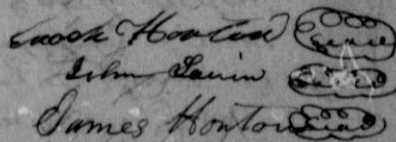 Enoch Houton Seal
John Lavin Seal
James Houton Seal